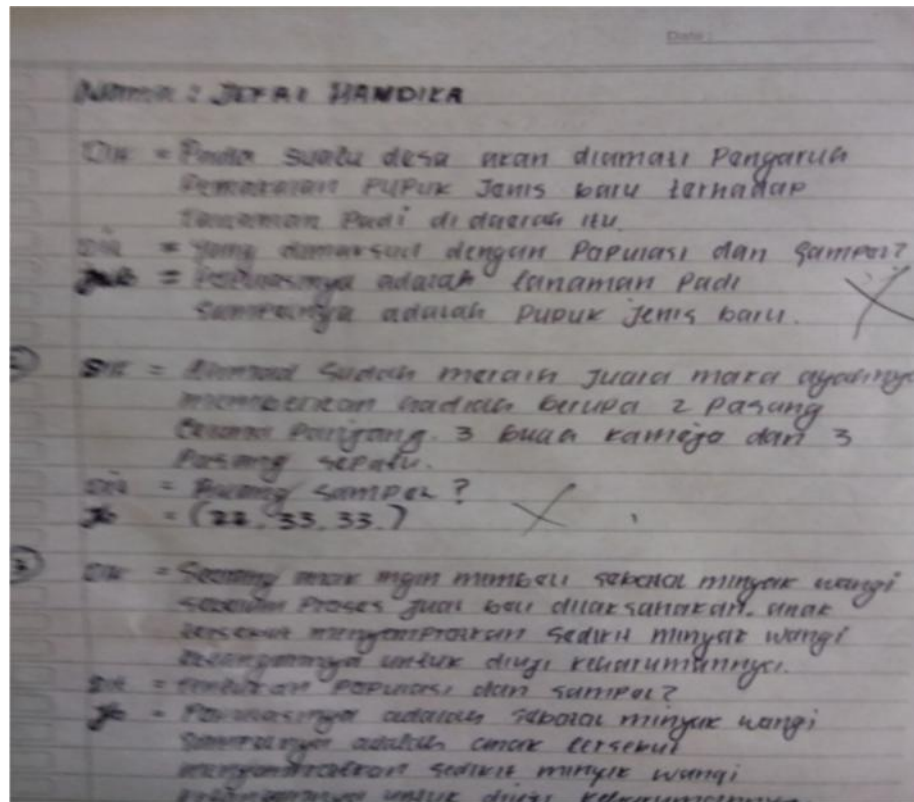 Date :
Nama : JEFRI HANDIKA
Dik = Pada suatu desa akan diamati Pengaruh
Pemakaian PUPUK Jenis baru terhadap
tanaman Padi di daerah itu.
Dit = Yang dimaksud dengan Populasi dan Sampel?
Jwb = Populasinya adalah tanaman Padi
Sampelnya adalah PUPUK Jenis baru.
Dik = sudah meraih Juara maka ayahnya
memberikan hadiah berupa 2 Pasang
Celana Panjang. 3 buah kameja dan 3
Pasang sepatu.
Dit = Ruang Sampel?
Jb = (22. 33. 33.)
3 Dik = Seorang anak ingin membeli sebotol minyak wangi
sebelum Proses jual beli dilaksanakan. anak
tersebut menyemprotkan sedikit minyak wangi
untuk diuji keharumannya.
Dit = tentukan Populasi dan sampel?
Jb = Populasinya adalah sebotol minyak wangi
Sampelnya adalah anak tersebut
menyemprotkan sedikit minyak wangi
untuk diuji keharumannya